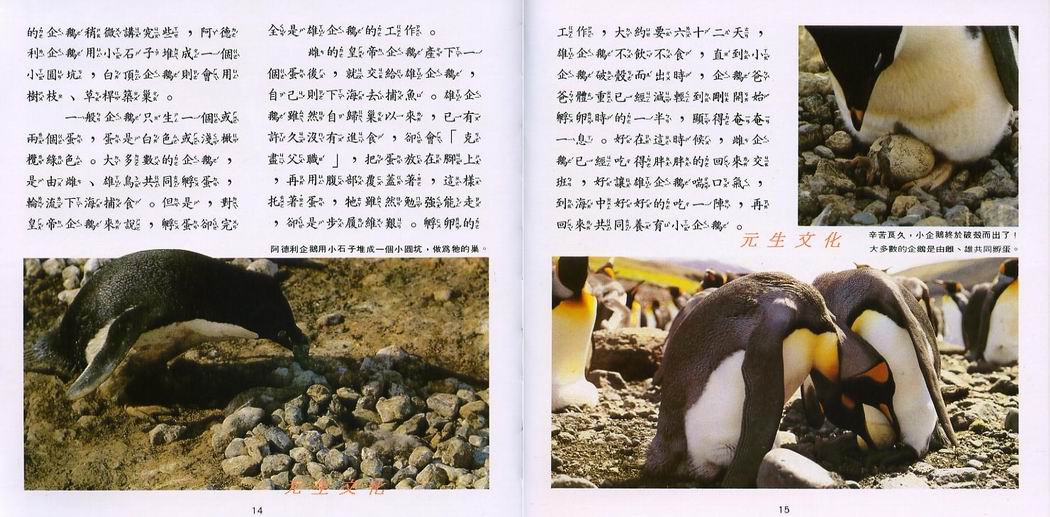 的企鵝稍微講究些，阿德
利企鵝用小石子堆成一個
小圓坑，白頂企鵝則會用
樹枝、草桿築巢。
一般企鵝只生一個或
兩個蛋，蛋是白色或淺橄
欖綠色。大多數的企鵝，
是由雌、雄鳥共同孵蛋，
輪流下海捕食。但是，對
皇帝企鵝來說，孵蛋卻完
全是雄企鵝的工作。
雌的皇帝企鵝產下一
個蛋後，就交給雄企鵝，
自己則下海去捕魚。雄企
鵝雖然自歸巢以來，已有
許久沒有進食，卻會「克
盡父職」，把蛋放在腳上
，再用腹部覆蓋著，這樣
托著蛋，牠雖然勉強能走
，卻是步履維艱。孵卵的
阿德利企鵝用小石子堆成一個小圓坑，做爲牠的巢。
元生文化
14
工作，大約要六十二天，
雄企鵝不飲不食，直到小
企鵝破殼而出時，企鵝爸
爸體重已經減輕到剛開始
孵卵時的一半，顯得奄奄
一息。好在這時候，雌企
鵝已經吃得胖胖的回來交
班，好讓雄企鵝喘口氣，
到海中好好的吃一陣，再
回來共同養育小企鵝。
元生文化
辛苦良久，小企鵝終於破殼而出了！
大多數的企鵝是由雌、雄共同孵蛋。
15